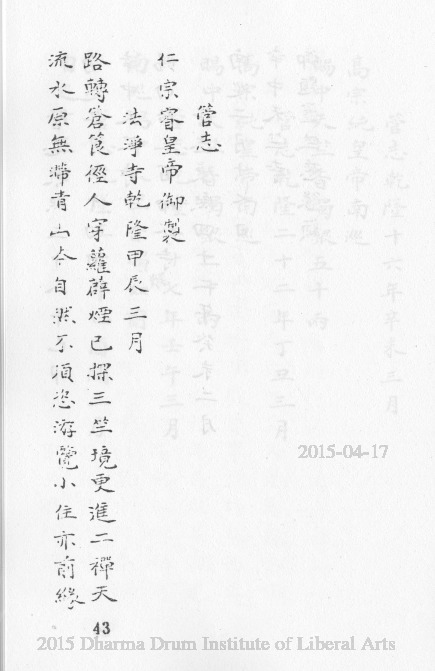 管志
仁宗睿皇帝御製
法淨寺乾隆甲辰三月
路轉蒼筤徑人穿蘿薜煙已探三竺境更進二禪天
流水原無滯青山本自然不須恣游覽小住亦前緣
43
2015-04-17
2015 Dharma Drum Institute of Liberal Arts